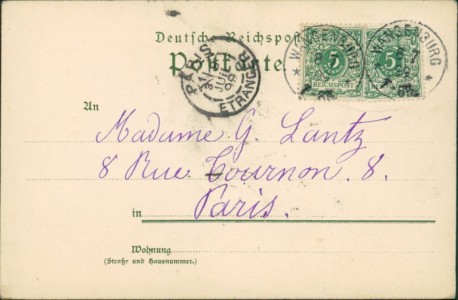 Deutsche Reichspost
Postkarte
5 5
REICHSPOST REICHSPOST
WANGENBURG WANGENBURG
PARIS
ETRANGER
An
Madame G. Lantz
8 Rue Tournon. 8.
in Paris.
Wohnung
(Straße und Hausnummer.)